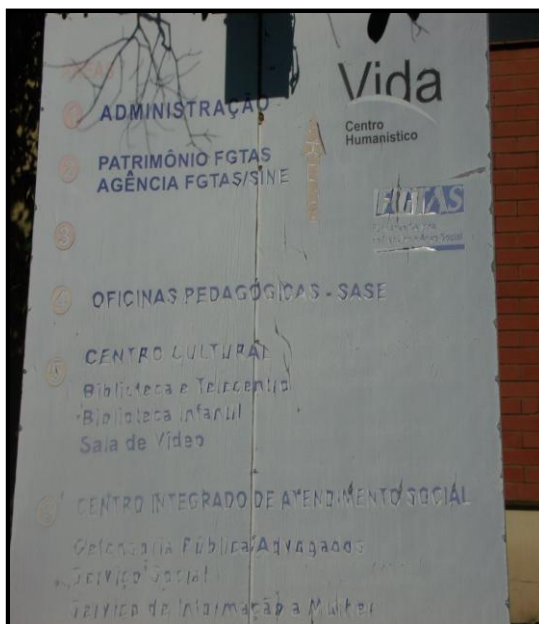 ÁREAS
Vida
Centro
Humanístico
1 ADMINISTRAÇÃO
2 PATRIMÔNIO FGTAS
AGÊNCIA FGTAS/SINE
FGTAS
3
4 OFICINAS PEDAGÓGICAS - SASE
5 CENTRO CULTURAL
Biblioteca e Telecentro
Biblioteca Infantil
Sala de Vídeo
6 CENTRO INTEGRADO DE ATENDIMENTO SOCIAL
Defensoria Pública/Advogados
Serviço Social
Serviço de Informação a Mulher